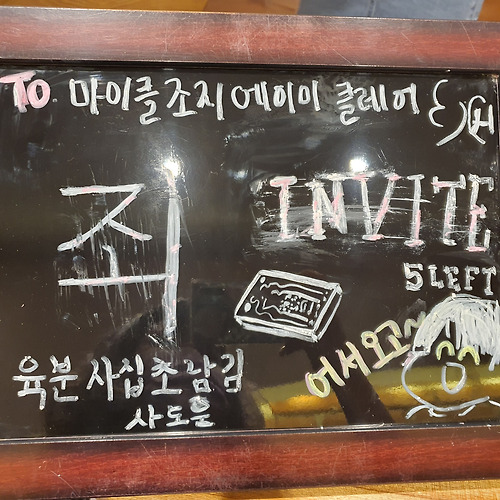 To 마이클 조지 에이미 클레어
죄
INVITE
5 LEFT
어서오고~
육분 사십초 감김
사도은